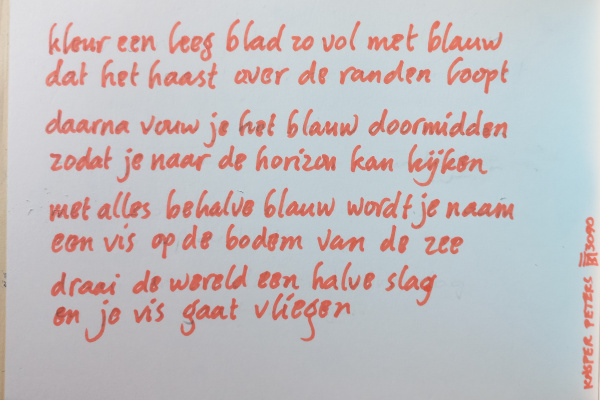 kleur een leeg blad zo vol met blauw
dat het haast over de randen loopt
daarna vouw je het blauw doormidden
zodat je naar de horizon kan kijken
met alles behalve blauw wordt je naam
een vis op de bodem van de zee
draai de wereld een halve slag
en je vis gaat vliegen
KASPER PETERS